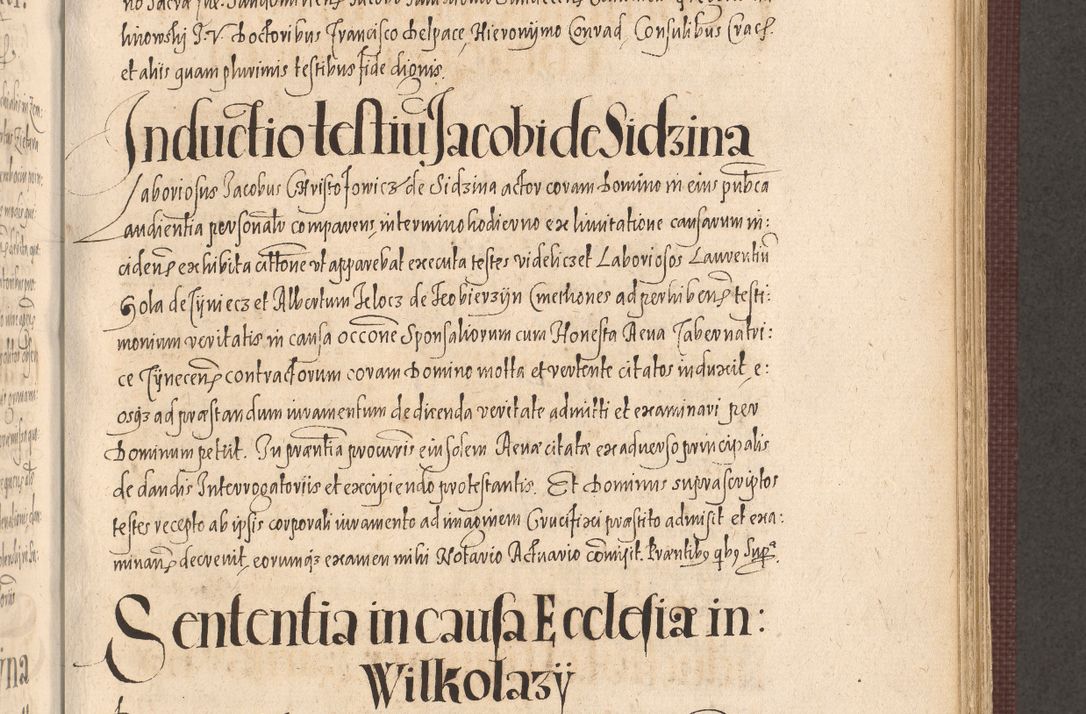 linowskj J. V. Doctoribus Francisco Delpacę, Hieronÿmo Conrad, Consulibus Cracf.
et aliis quam plurimis testibus fide dignis.
Inductio testiū Jacobi de Sidzina
Laboriosus Jacobus Christofowicz de Sidzina actor coram Domino in eius pubca
audientia personalr comparens, in termino hodierno ex limitatione causarum in:
cidenę exhibita cittone ut apparebat executa testes videliczet Laboriosos Laurentiū
Gola de Tÿniecz et Albertum Jelocz de Feobierzÿn Cmethones ad perhibenę testi:
monium veritatis in causa occone Sponsaliorum cum Honesta Aeua Tabernatri:
ce Tÿnecenę contractorum coram Domino motta et vertente citatos induxit, e:
osqz ad præstandum iuramentum de dicenda veritate admitti et examinari per
Dominum petiit. In præntia procuris eiusdem Aeuæ citatæ ex aduerso principalis
de dandis Interrogatoriis et excipiendo protestantis. Et Dominus suprascriptos
testes recepto ab ipsis corporali iuramento ad imaginem Crucifixi præstito admisit et exa:
minanę decreuit, eorumqz examen mihi Notario Actuario comisit. Præntibz qbz Supra.
Sententia in causa Ecclesiæ in:
Wilkolazÿ